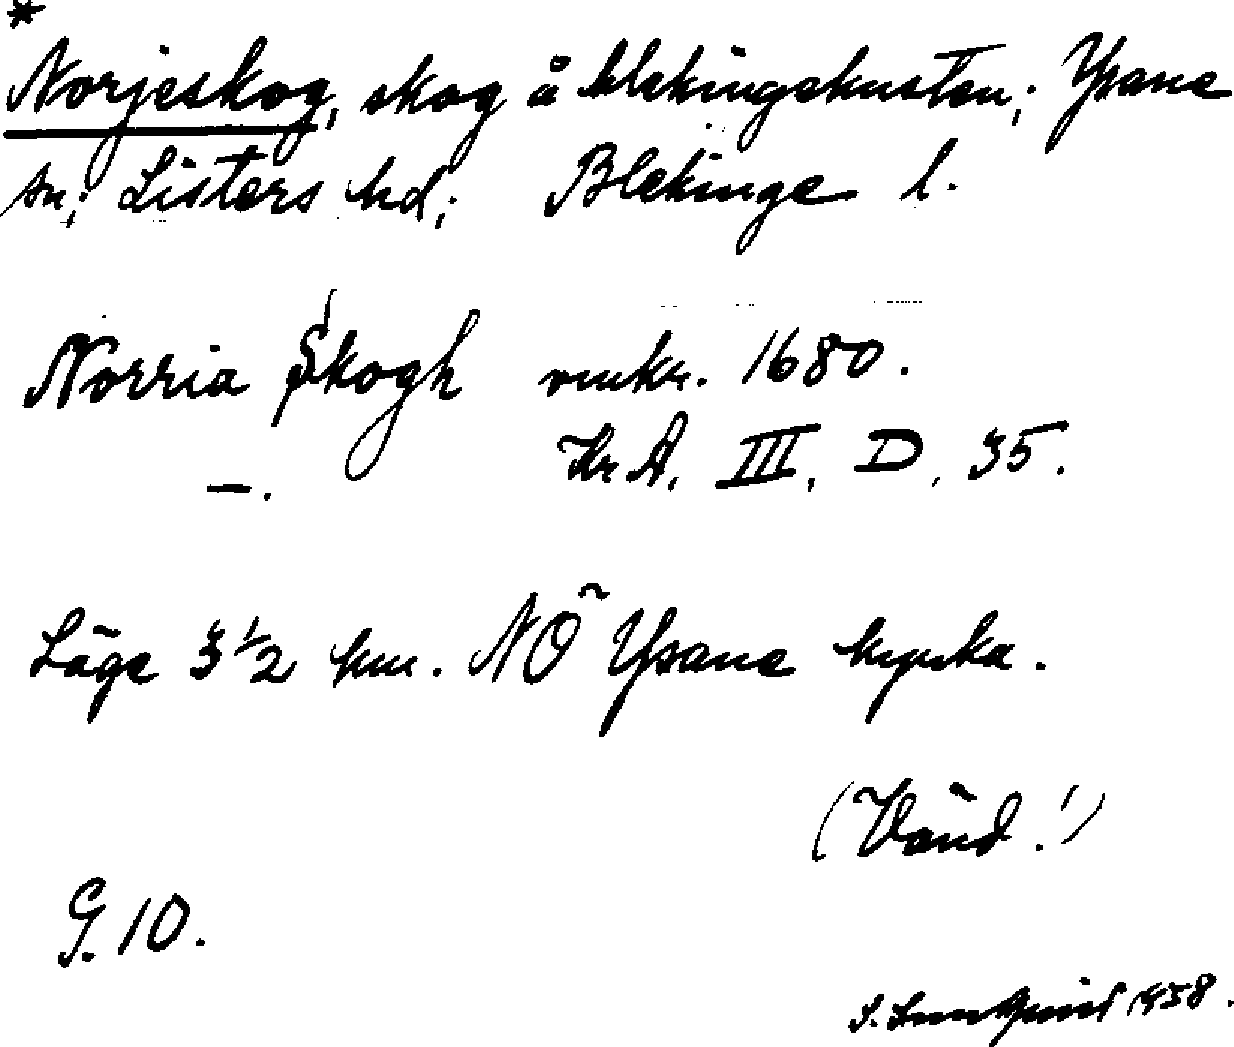 *
Norjeskog, skog å blekingekusten; Ysane
sn; Listers hd; Blekinge l.
Norria Skogh omkr. 1680.
–. Kr A, III, D, 35.
Läge 3 1/2 km. NÖ Ysane kyrka.
(Vänd!)
G. 10.
S. 1958.